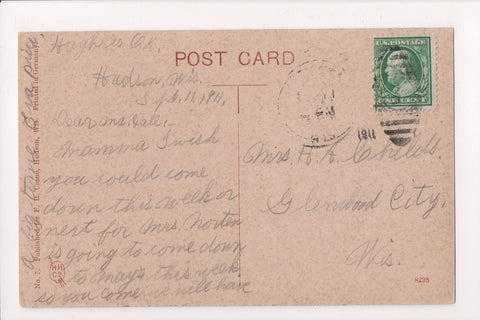 Hugh is O.K.
POST CARD
Hudson, Wis.
Sept. 11, 1911,
Dear Ma. Dale:-
Mamma I wish
you could come
down this week or
next for Mrs. Norten
is going to come down
to May's this week
so you come. it will have
a big time
Mrs H. A. Childs.
Glenwood City,
Wis.
U.S. POSTAGE
ONE CENT
1911
No. 7. Published by F. E. Hudson, Wis. Printed in Germany.
8293